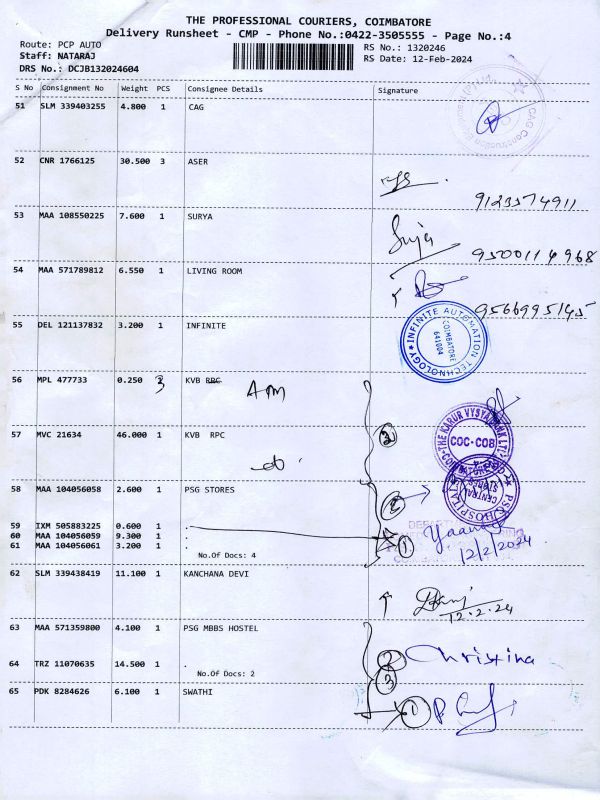 THE PROFESSIONAL COURIERS, COIMBATORE
Delivery Runsheet - CMP - Phone No.:0422-3505555 - Page No.:4
Route: PCP AUTO
RS No.: 1320246
Staff: NATARAJ
RS Date: 12-Feb-2024
DRS No.: DCJB132024604
S No Consignment No Weight PCS Consignee Details Signature
51 SLM 339403255 4.800 1 CAG
52 CNR 1766125 30.500 3 ASER
9123574911
53 MAA 108550225 7.600 1 SURYA
Suja
9500114968
54 MAA 571789812 6.550 1 LIVING ROOM
9566995145
55 DEL 121137832 3.200 1 INFINITE
INFINITE AUTOMATION TECHNOLOGY
COIMBATORE
641004
56 MPL 477733 0.250 3 KVB RPC
57 MVC 21634 46.000 1 KVB RPC
2
THE KARUR VYSYA BANK LTD
COC-COB
58 MAA 104056058 2.600 1 PSG STORES
CENTRAL STORES
PSG HOSPITALS
59 IXM 505883225 0.600 1 .
60 MAA 104056059 9.300 1 .
61 MAA 104056061 3.200 1 .
1
12/2/2024
No.Of Docs: 4
62 SLM 339438419 11.100 1 KANCHANA DEVI
12.2.24
63 MAA 571359800 4.100 1 PSG MBBS HOSTEL
2 Christina
64 TRZ 11070635 14.500 1 .
No.Of Docs: 2
3
65 PDK 8284626 6.100 1 SWATHI
1